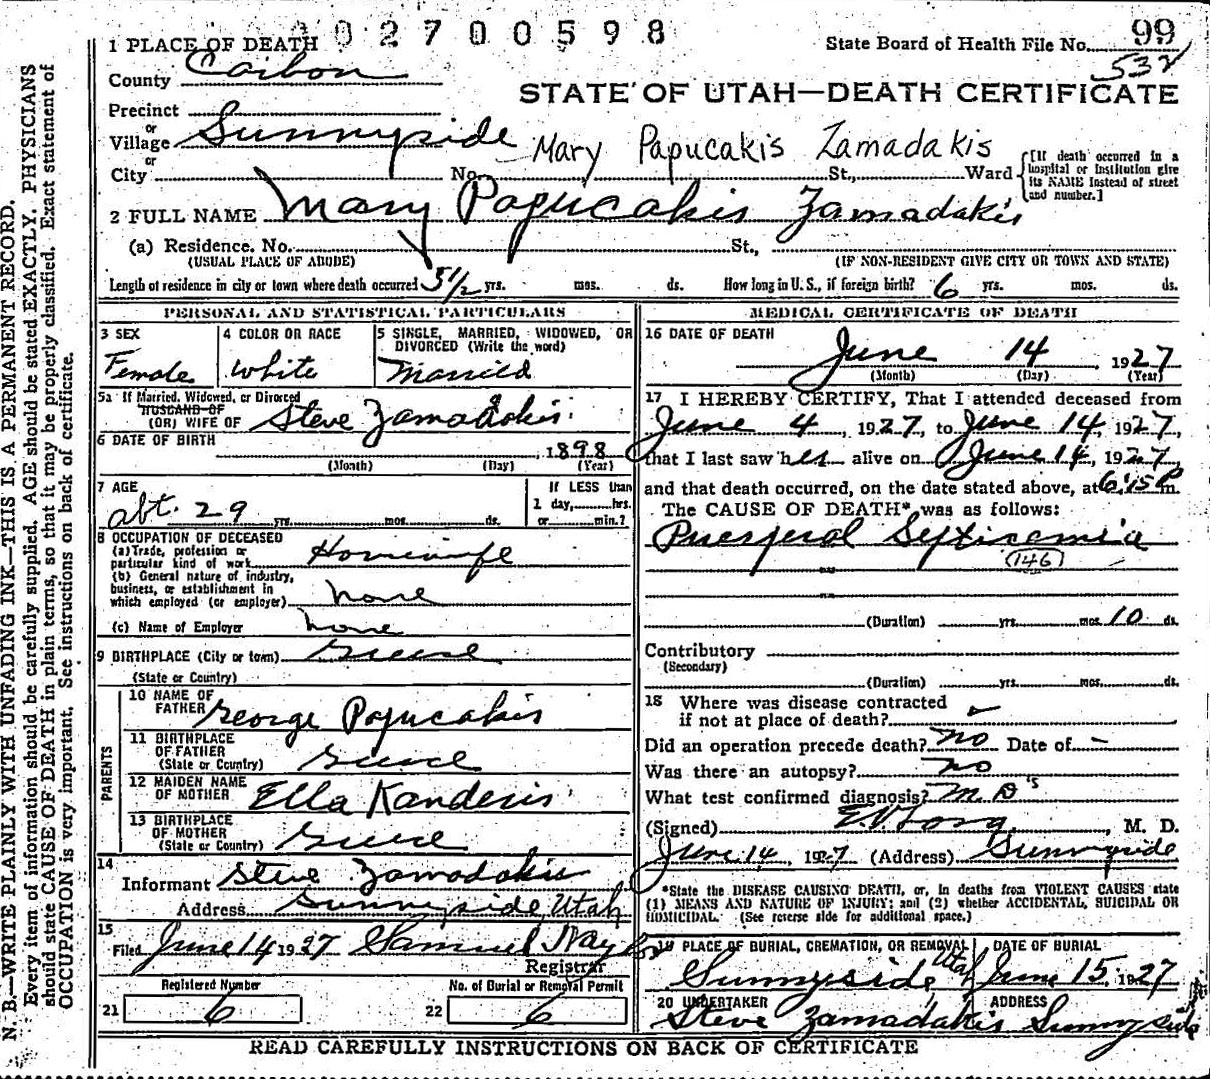 0 0 2 7 0 0 5 9 8
1 PLACE OF DEATH
State Board of Health File No. 99
532
County Carbon
STATE OF UTAH—DEATH CERTIFICATE
Precinct
or
Village Sunnyside
or
Mary Papucakis Zamadakis
City No. St., Ward
[If death occurred in a
hospital or institution give
its NAME instead of street
and number.]
2 FULL NAME Mary Papucakis Zamadakis
(a) Residence. No. St.,
(USUAL PLACE OF ABODE) (IF NON-RESIDENT GIVE CITY OR TOWN AND STATE)
Length of residence in city or town where death occurred 5 1/2 yrs. mos. ds. How long in U. S., if foreign birth? 6 yrs. mos. ds.
PERSONAL AND STATISTICAL PARTICULARS
3 SEX
Female
4 COLOR OR RACE
White
5 SINGLE, MARRIED, WIDOWED, OR
DIVORCED (Write the word)
Married
5a If Married, Widowed, or Divorced
HUSBAND OF
(OR) WIFE OF Steve Zamadakis
6 DATE OF BIRTH
1898
(Month) (Day) (Year)
7 AGE
abt. 29 yrs. mos. ds.
If LESS than
1 day, hrs.
or min.?
8 OCCUPATION OF DECEASED
(a) Trade, profession or
particular kind of work Housewife
(b) General nature of industry,
business, or establishment in
which employed (or employer) none
(c) Name of Employer none
9 BIRTHPLACE (City or town) Greece
(State or Country)
PARENTS
10 NAME OF
FATHER George Papucakis
11 BIRTHPLACE
OF FATHER
(State or Country) Greece
12 MAIDEN NAME
OF MOTHER Ella Kanderis
13 BIRTHPLACE
OF MOTHER
(State or Country) Greece
14
Informant Steve Zamadakis
Address Sunnyside, Utah
15
Filed June 14 1927 Samuel Naylor
Registrar
Registered Number
21 6
No. of Burial or Removal Permit
22 6
MEDICAL CERTIFICATE OF DEATH
16 DATE OF DEATH
June 14 1927
(Month) (Day) (Year)
17 I HEREBY CERTIFY, That I attended deceased from
June 4, 1927, to June 14, 1927,
that I last saw her alive on June 14, 1927,
and that death occurred, on the date stated above, at 6:15 P m.
The CAUSE OF DEATH* was as follows:
Puerperal Septicemia
(146)
(Duration) yrs. mos. 10 ds.
Contributory
(Secondary)
(Duration) yrs. mos. ds.
18 Where was disease contracted
if not at place of death?
Did an operation precede death? no Date of –
Was there an autopsy? no
What test confirmed diagnosis? M.D's
(Signed) , M. D.
June 14, 1927 (Address) Sunnyside
*State the DISEASE CAUSING DEATH, or, in deaths from VIOLENT CAUSES state
(1) MEANS AND NATURE OF INJURY; and (2) whether ACCIDENTAL, SUICIDAL OR
HOMICIDAL. (See reverse side for additional space.)
19 PLACE OF BURIAL, CREMATION, OR REMOVAL
Sunnyside Utah
DATE OF BURIAL
June 15, 1927
20 UNDERTAKER
Steve Zamadakis
ADDRESS
Sunnyside
READ CAREFULLY INSTRUCTIONS ON BACK OF CERTIFICATE
N. B.—WRITE PLAINLY WITH UNFADING INK—THIS IS A PERMANENT RECORD.
Every item of information should be carefully supplied. AGE should be stated EXACTLY. PHYSICIANS
should state CAUSE OF DEATH in plain terms, so that it may be properly classified. Exact statement of
OCCUPATION is very important. See instructions on back of certificate.